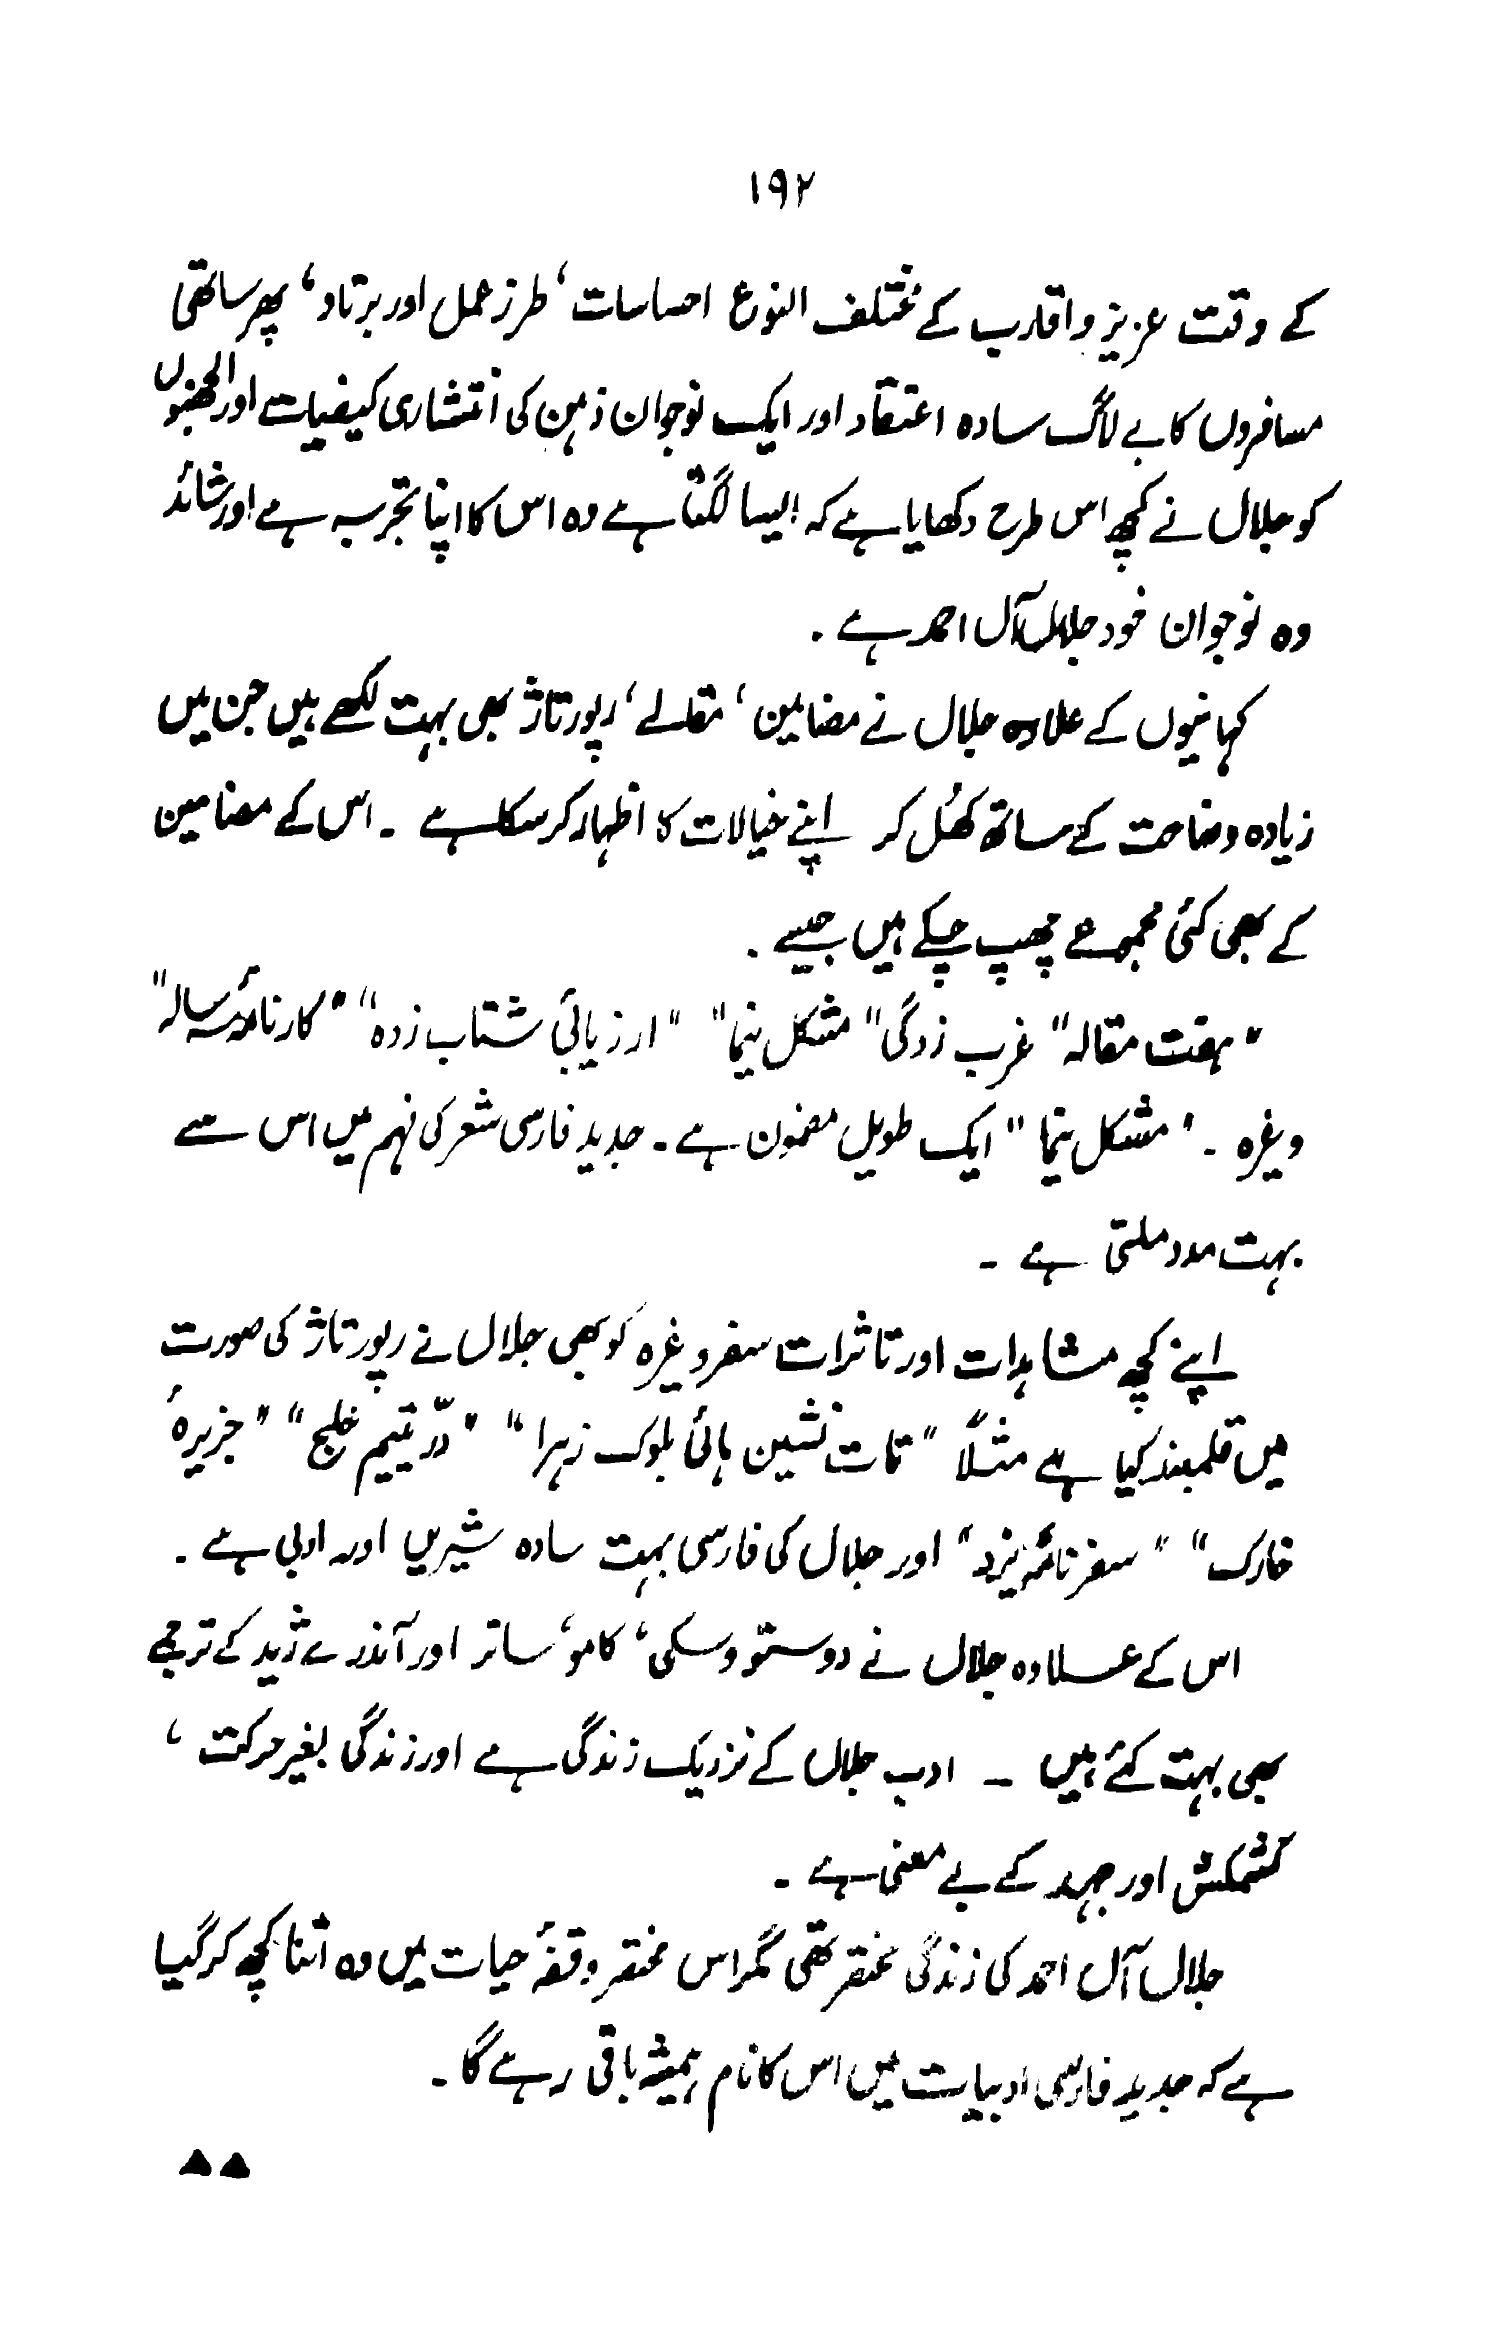 ۱۹۲
کے وقت عزیز و اقارب کے مختلف النوع احساسات ‘ طرز عمل اور برتاو ‘ پھر ساتھی
مسافروں کا بے لاگ سادہ اعتقاد اور ایک نوجوان ذہن کی انتشاری کیفیات اور الجھنوں
کو جلال نے کچھ اس طرح دکھایا ہے کہ ایسا لگتا ہے وہ اس کا اپنا تجربہ ہے اور شائد
وہ نوجوان خود جلال آل احمد ہے .
کہانیوں کے علاوہ جلال نے مضامین ‘ مقالے ‘ رپورتاژ بھی بہت لکھے ہیں جن میں
زیادہ وضاحت کے ساتھ کھُل کر اپنے خیالات کا اظہار کر سکا ہے ۔ اس کے مضامین
کے بھی کئی مجموعے چھپ چکے ہیں جیسے .
" ہفت مقالہ" غرب زدگی" مشکل نیما" " ارزیابی شتاب زدہ" " کارنامۂ سہ سالہ"
وغیرہ ۔ " مشکل نیما " ایک طویل مضمون ہے ۔ جدید فارسی شعر کی فہم میں اس سے
بہت مدد ملتی ہے ۔
اپنے کچھ مشاہدات اور تاثرات سفر وغیرہ کو بھی جلال نے رپورتاژ کی صورت
میں قلمبند کیا ہے مثلاً " تات نشین ہائی بلوک زہرا " " دُرّ یتیم خلیج " " جزیرۂ
خارک " " سفرنامۂ یزد" اور جلال کی فارسی بہت سادہ شیریں اور ادبی ہے ۔
اس کے علاوہ جلال نے دوستووسکی ‘ کامو ‘ ساتر اور آندرے ژید کے ترجمے
بھی بہت کئے ہیں ۔ ادب جلال کے نزدیک زندگی ہے اور زندگی بغیر حرکت ‘
کشمکش اور جہد کے بے معنی ہے ۔
جلال آل احمد کی زندگی مختصر تھی مگر اس مختصر وقفۂ حیات میں وہ اتنا کچھ کر گیا
ہے کہ جدید فارسی ادبیات میں اس کا نام ہمیشہ باقی رہے گا ۔